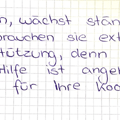 n, wächst stän
brauchen sie ext
stützung, denn
Hilfe ist angen
für Ihre Koo